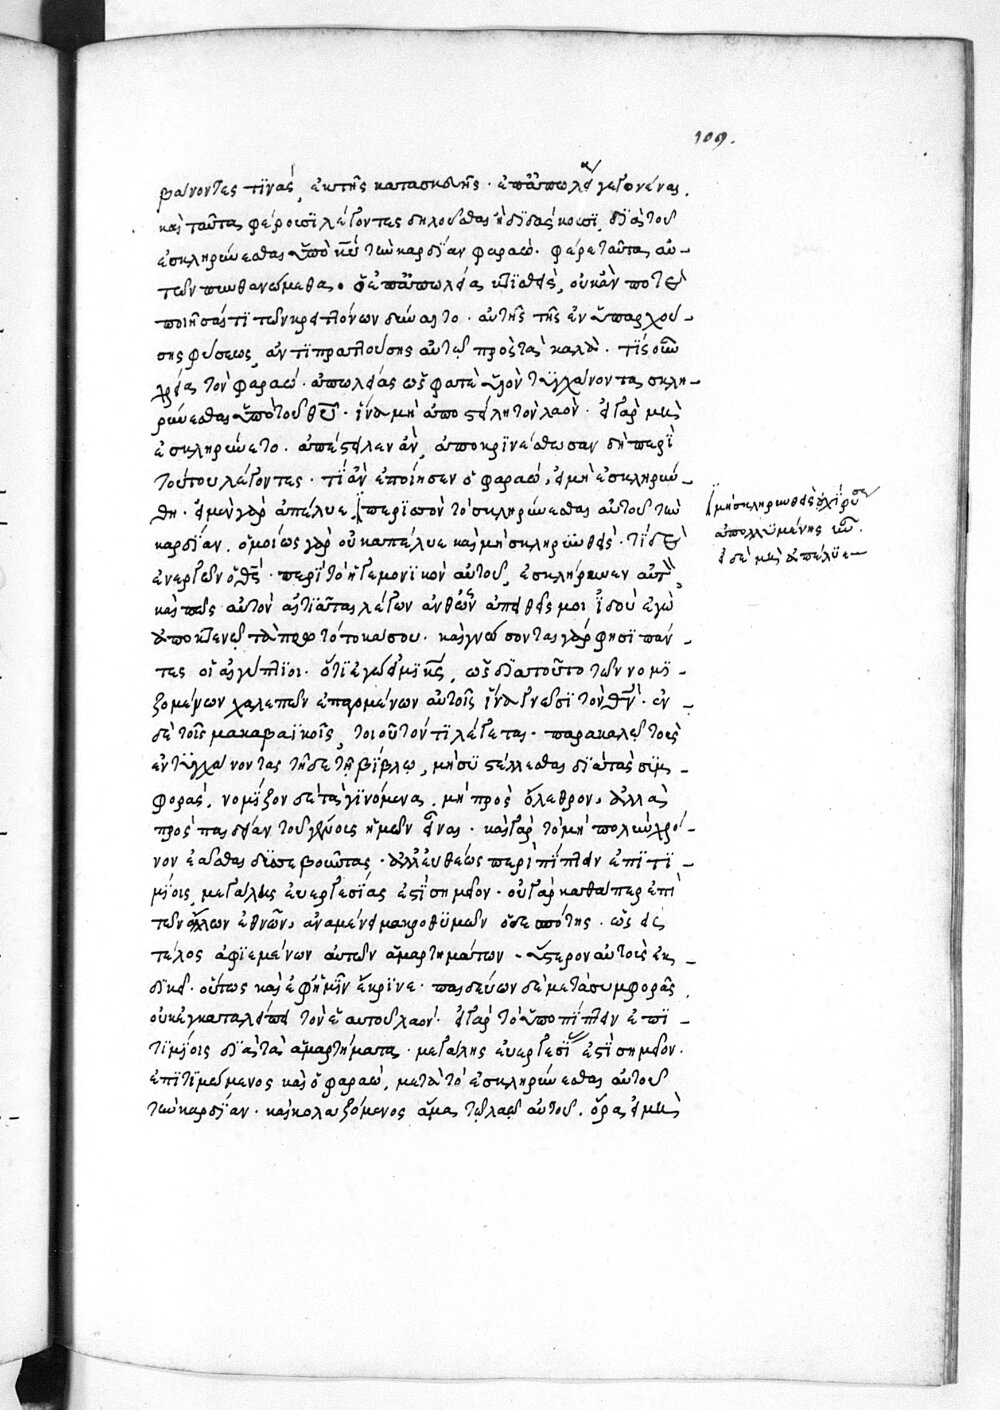 109.
βαίνοντες τινὰς, ἐκ τῆς κατασκευῆς. ἐπ' ἀπωλεία γεγονέναι.
καὶ ταῦτα φέρουσι λέγοντες δηλοῦσθαι ἢ διδάσκουσι, διὰ τοῦ
ἐσκληρύνεσθαι ὑπὸ κυ τὴν καρδίαν φαραώ. φέρε ταῦτα αὐ-
τῶν πυνθανώμεθα. ὁ ἐπ' ἀπωλεία κτισθεὶς, οὐκ ἄν ποτε
ποιῆσαί τι τῶν κρειττόνων δύναιτο. αὐτῆς τῆς ἐνυπαρχού-
σης φύσεως, ἀντιπραττούσης αὐτῷ πρὸς τὰ καλά. τίς οὖν
χρεία τὸν φαραώ. ἀπωλείας ὥς φατε υἱὸν τυγχάνοντα σκλη-
ρύνεσθαι ὑπὸ τοῦ θυ. ἵνα μὴ ἀποστείλη τὸν λαόν. εἰ γὰρ μὴ
ἐσκληρύνετο. ἀπέστειλεν ἄν, ἀποκρινέσθωσαν δὴ περὶ
τούτου λέγοντες. τί ἂν ἐποίησεν ὁ φαραώ, εἰ μὴ ἐσκληρύν-
θη. εἰ μὲν γὰρ ἀπέλυε περισσὸν τὸ σκληρύνεσθαι αὐτοῦ τὴν
καρδίαν. ὁμοίως γὰρ οὐκ ἀπέλυε καὶ μὴ σκληρυνθείς. τί δὲ
ἐνεργῶν ὁ θς. περὶ τὸ ἡγεμονικὸν αὐτοῦ, ἐσκλήρυνεν αὐτό,
καὶ πῶς αὐτὸν αἰτιᾶται λέγων ἀνθ' ὧν ἀπειθεῖς μοι ἰδοὺ ἐγὼ
ἀποκτενῶ τὰ πρωτότοκά σου. καὶ γνώσονται γὰρ φησὶ πάν-
τες οἱ αἰγύπτιοι. ὅτι ἐγώ εἰμι κς, ὡς διὰ τοῦτο τῶν νομι-
ζομένων χαλεπῶν ἐπαγομένων αὐτοῖς ἵνα γνῶσι τὸν θν. ἐν
δὲ τοῖς μακαβαϊκοῖς, τοιοῦτόν τι λέγεται. παρακαλῶ τοὺς
ἐντυγχάνοντας τῆδε τῆ βίβλω, μὴ συστέλλεσθαι διὰ τὰς συμ-
φοράς. νομίζειν δὲ τὰ γινόμενα. μὴ πρὸς ὄλεθρον, ἀλλὰ
πρὸς παιδείαν τοῦ γένους ἡμῶν εἶναι. καὶ γὰρ τὸ μὴ πολὺν χρό-
νον ἐᾶσθαι δυσσεβοῦντας. ἀλλ' εὐθέως περιπίπτειν ἐπιτι-
μίοις, μεγάλης εὐεργεσίας ἐστὶ σημεῖον. οὐ γὰρ καθάπερ ἐπὶ
τῶν ἄλλων ἐθνῶν, ἀναμένει μακροθυμῶν ὁ δεσπότης. ὡς εἰς
τέλος ἀφιεμένων αὐτῶν ἁμαρτημάτων. ὕστερον αὐτοὺς ἐκ-
δικεῖ. οὕτως καὶ ἐφ' ἡμῖν ἔκρινε. παιδεύων δὲ μετὰ συμφορᾶς,
οὐκ ἐγκαταλείπει τὸν ἑαυτοῦ λαόν. εἰ γὰρ τὸ ὑποπίπτειν ἐπι-
τιμίοις διὰ τὰ ἁμαρτήματα. μεγάλης εὐεργεσίας ἐστὶ σημεῖον.
ἐπιτιμώμενος καὶ ὁ φαραώ, μετὰ τὸ ἐσκληρύνεσθαι αὐτοῦ
τὴν καρδίαν. καὶ κολαζόμενος ἅμα τῷ λαῷ αὐτοῦ. ὅρα εἰ μὴ
μὴ σκληρυνθεὶς
ἀπολλυμένης
εἰ δὲ μὴ ἀπέλυε